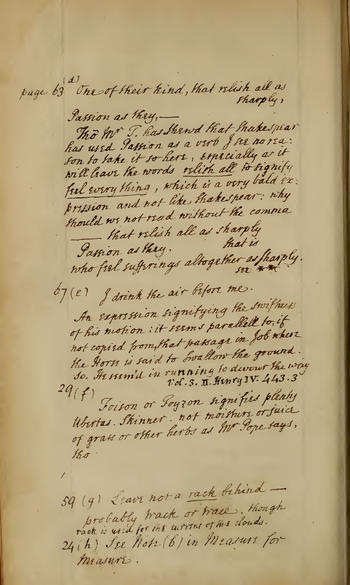 (d)
page 63 One of their kind, that relish all as
sharply,
Passion as they, —
Tho' Mr T. has shew'd that Shakespear
has used Passion as a verb I see no rea-
son to take it so here, especially as it
will leave the words relish all to signify
feel every thing, which is a very bald ex-
pression and not like Shakespear: why
should we not read without the comma
—— that relish all as sharply
Passion as they. that is
who feel sufferings altogether as sharply.
**
67 (e) I drink the air before me.
An expression signifying the swiftness
of his motion: it seems parallell to, if
not copied from, that passage in Job where
the Horse is said to swallow the ground.
So, He seem'd in running to devour the way
Vol. 3. II. Henry IV. 443. 3
29 (f)
Foison or Foyzon signifies plenty
Ubertas. Skinner. not moisture or juice
of grass or other herbs as Mr Pope says,
tho
59 (g) Leave not a rack behind —
probably track or trace, though
rack is used for the of the clouds.
24 (h) See Note (b) in Measure for
Measure.